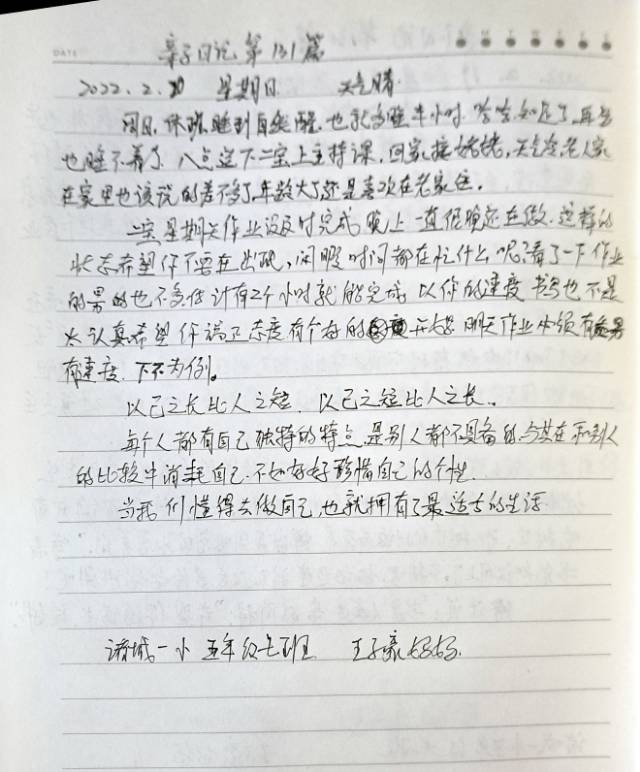 DATE
亲子日记 第131篇
2022.2.20 星期日 天气晴
周日,休班睡到自然醒.也就多睡半小时
也睡不着了.八点送下二宝上主持课,回家接姥姥,天气冷老人家
在家里也该说的差不多了,年龄大了还是喜欢在老家住。
二宝星期天作业没及时完成 晚上一直很晚还在做.这样的
状态希望你不要在出现,闲暇时间都在忙什么呢?看了一下作业
的量也不多估计有2个小时就能完成 以你的速度 书写也不是
太认真希望你端正态度有个好的开端 明天作业必须有
有速度.下不为例。
以己之长比人之短.以己之短比人之长.
每个人都有自己独特的特点.是别人都不具备的.与其在和别人
的比较中消耗自己.不如好好珍惜自己的个性.
当我们懂得去做自己也就拥有了最适合的生活
诸城一小 五年级七班 王子豪妈妈.